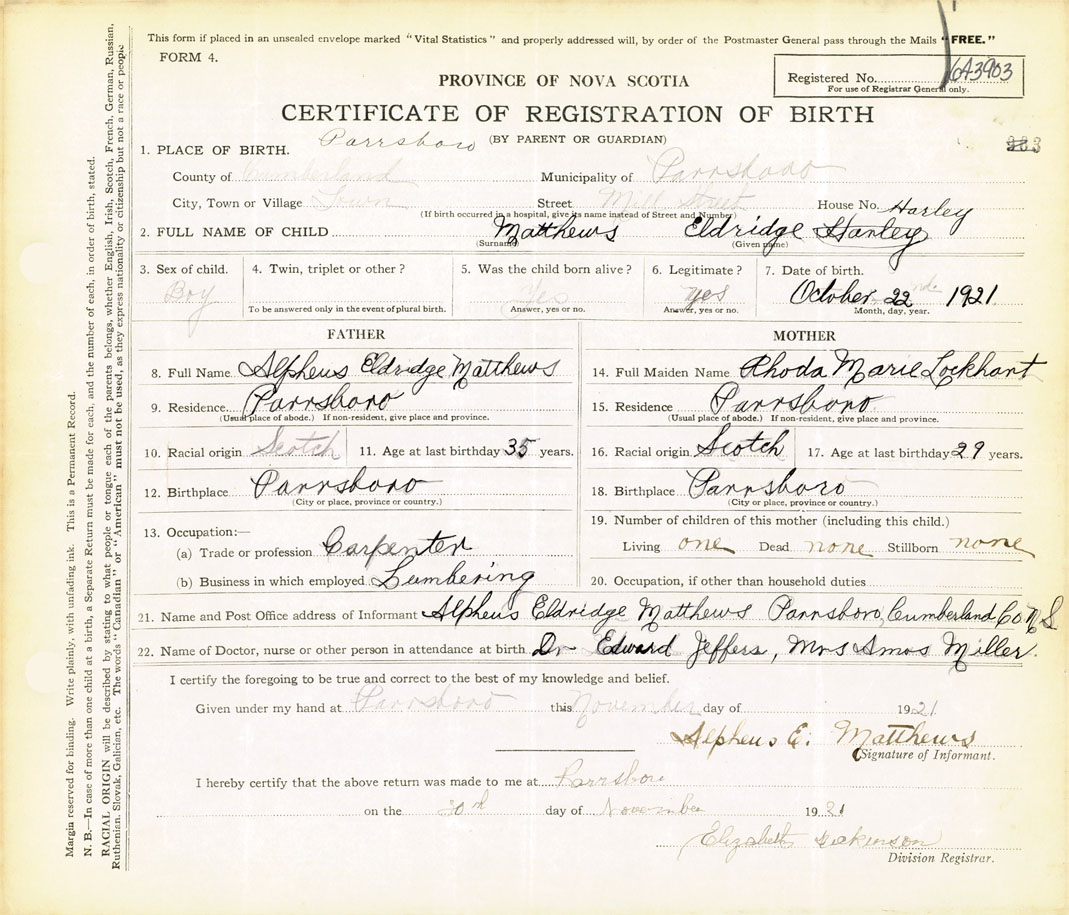 This form if placed in an unsealed envelope marked "Vital Statistics" and properly addressed will, by order of the Postmaster General pass through the Mails "FREE."
FORM 4.
PROVINCE OF NOVA SCOTIA
Registered No. 6A3903
For use of Registrar General only.
CERTIFICATE OF REGISTRATION OF BIRTH
(BY PARENT OR GUARDIAN)
1. PLACE OF BIRTH. Parrsboro
County of Cumberland Municipality of Parrsboro
City, Town or Village Town Street Mill Street House No.
(If birth occurred in a hospital, give its name instead of Street and Number)
Harley
2. FULL NAME OF CHILD Matthews Eldridge Harley
(Surname) (Given name)
3. Sex of child. 4. Twin, triplet or other? 5. Was the child born alive? 6. Legitimate? 7. Date of birth.
Boy Yes yes October 22nd 1921
To be answered only in the event of plural birth. Answer, yes or no. Answer, yes or no. Month, day, year.
FATHER
8. Full Name Alpheus Eldridge Matthews
9. Residence Parrsboro
(Usual place of abode.) If non-resident, give place and province.
10. Racial origin Scotch 11. Age at last birthday 35 years.
12. Birthplace Parrsboro
(City or place, province or country.)
13. Occupation:—
(a) Trade or profession Carpenter
(b) Business in which employed Lumbering
MOTHER
14. Full Maiden Name Rhoda Marie Lockhart
15. Residence Parrsboro
(Usual place of abode.) If non-resident, give place and province.
16. Racial origin Scotch 17. Age at last birthday 29 years.
18. Birthplace Parrsboro
(City or place, province or country.)
19. Number of children of this mother (including this child.)
Living one Dead none Stillborn none
20. Occupation, if other than household duties
21. Name and Post Office address of Informant Alpheus Eldridge Matthews Parrsboro, Cumberland Co N S
22. Name of Doctor, nurse or other person in attendance at birth. Dr Edward Jeffers, Mrs Amos Miller.
I certify the foregoing to be true and correct to the best of my knowledge and belief.
Given under my hand at Parrsboro this November day of 1921
Alpheus E. Matthews
Signature of Informant.
I hereby certify that the above return was made to me at Parrsboro
on the 30th day of November 1921
Elizabeth Dickinson
Division Registrar.
Margin reserved for binding. Write plainly, with unfading ink. This is a Permanent Record.
N. B.—In case of more than one child at a birth, a Separate Return must be made for each, and the number of each, in order of birth, stated.
RACIAL ORIGIN will be described by stating to what people or tongue each of the parents belongs, whether English, Irish, Scotch, French, German, Russian,
Ruthenian. Slovak, Galician, etc. The words "Canadian" or "American" must not be used, as they express nationality or citizenship but not a race or people